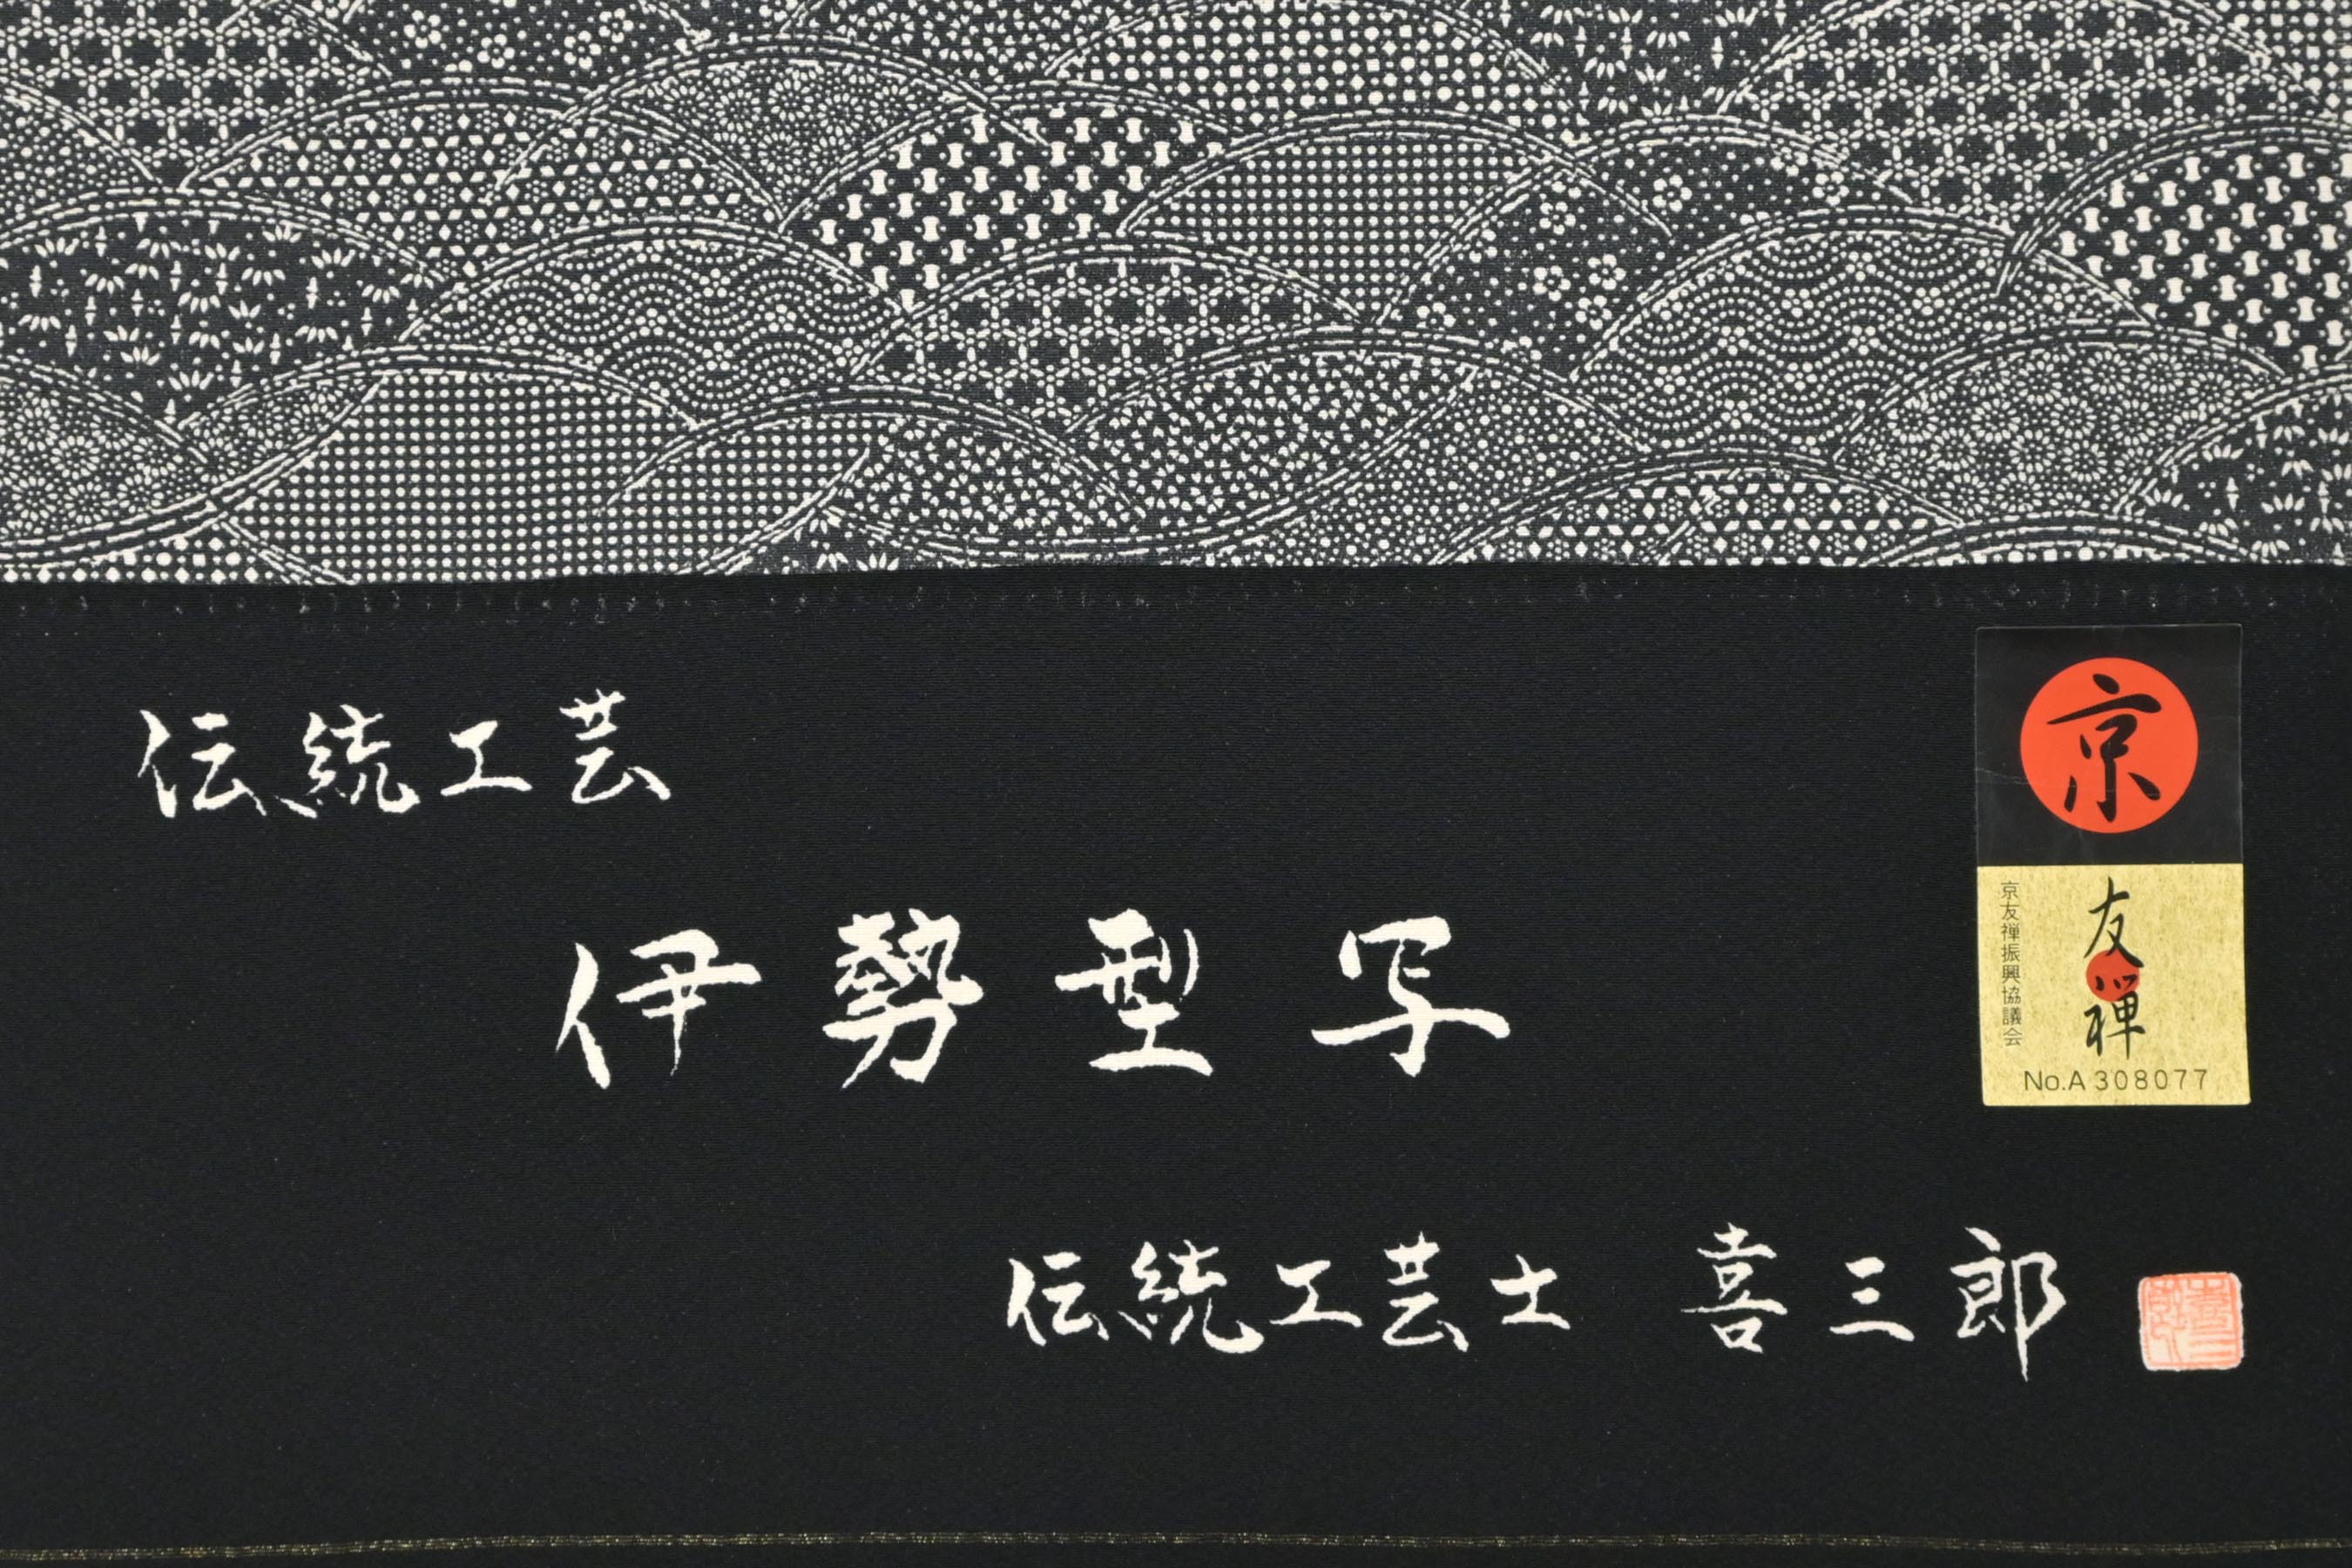 伝統工芸
伊勢型写
伝統工芸士 喜三郎
京
友禅
京友禅振興協議会
No.A 308077